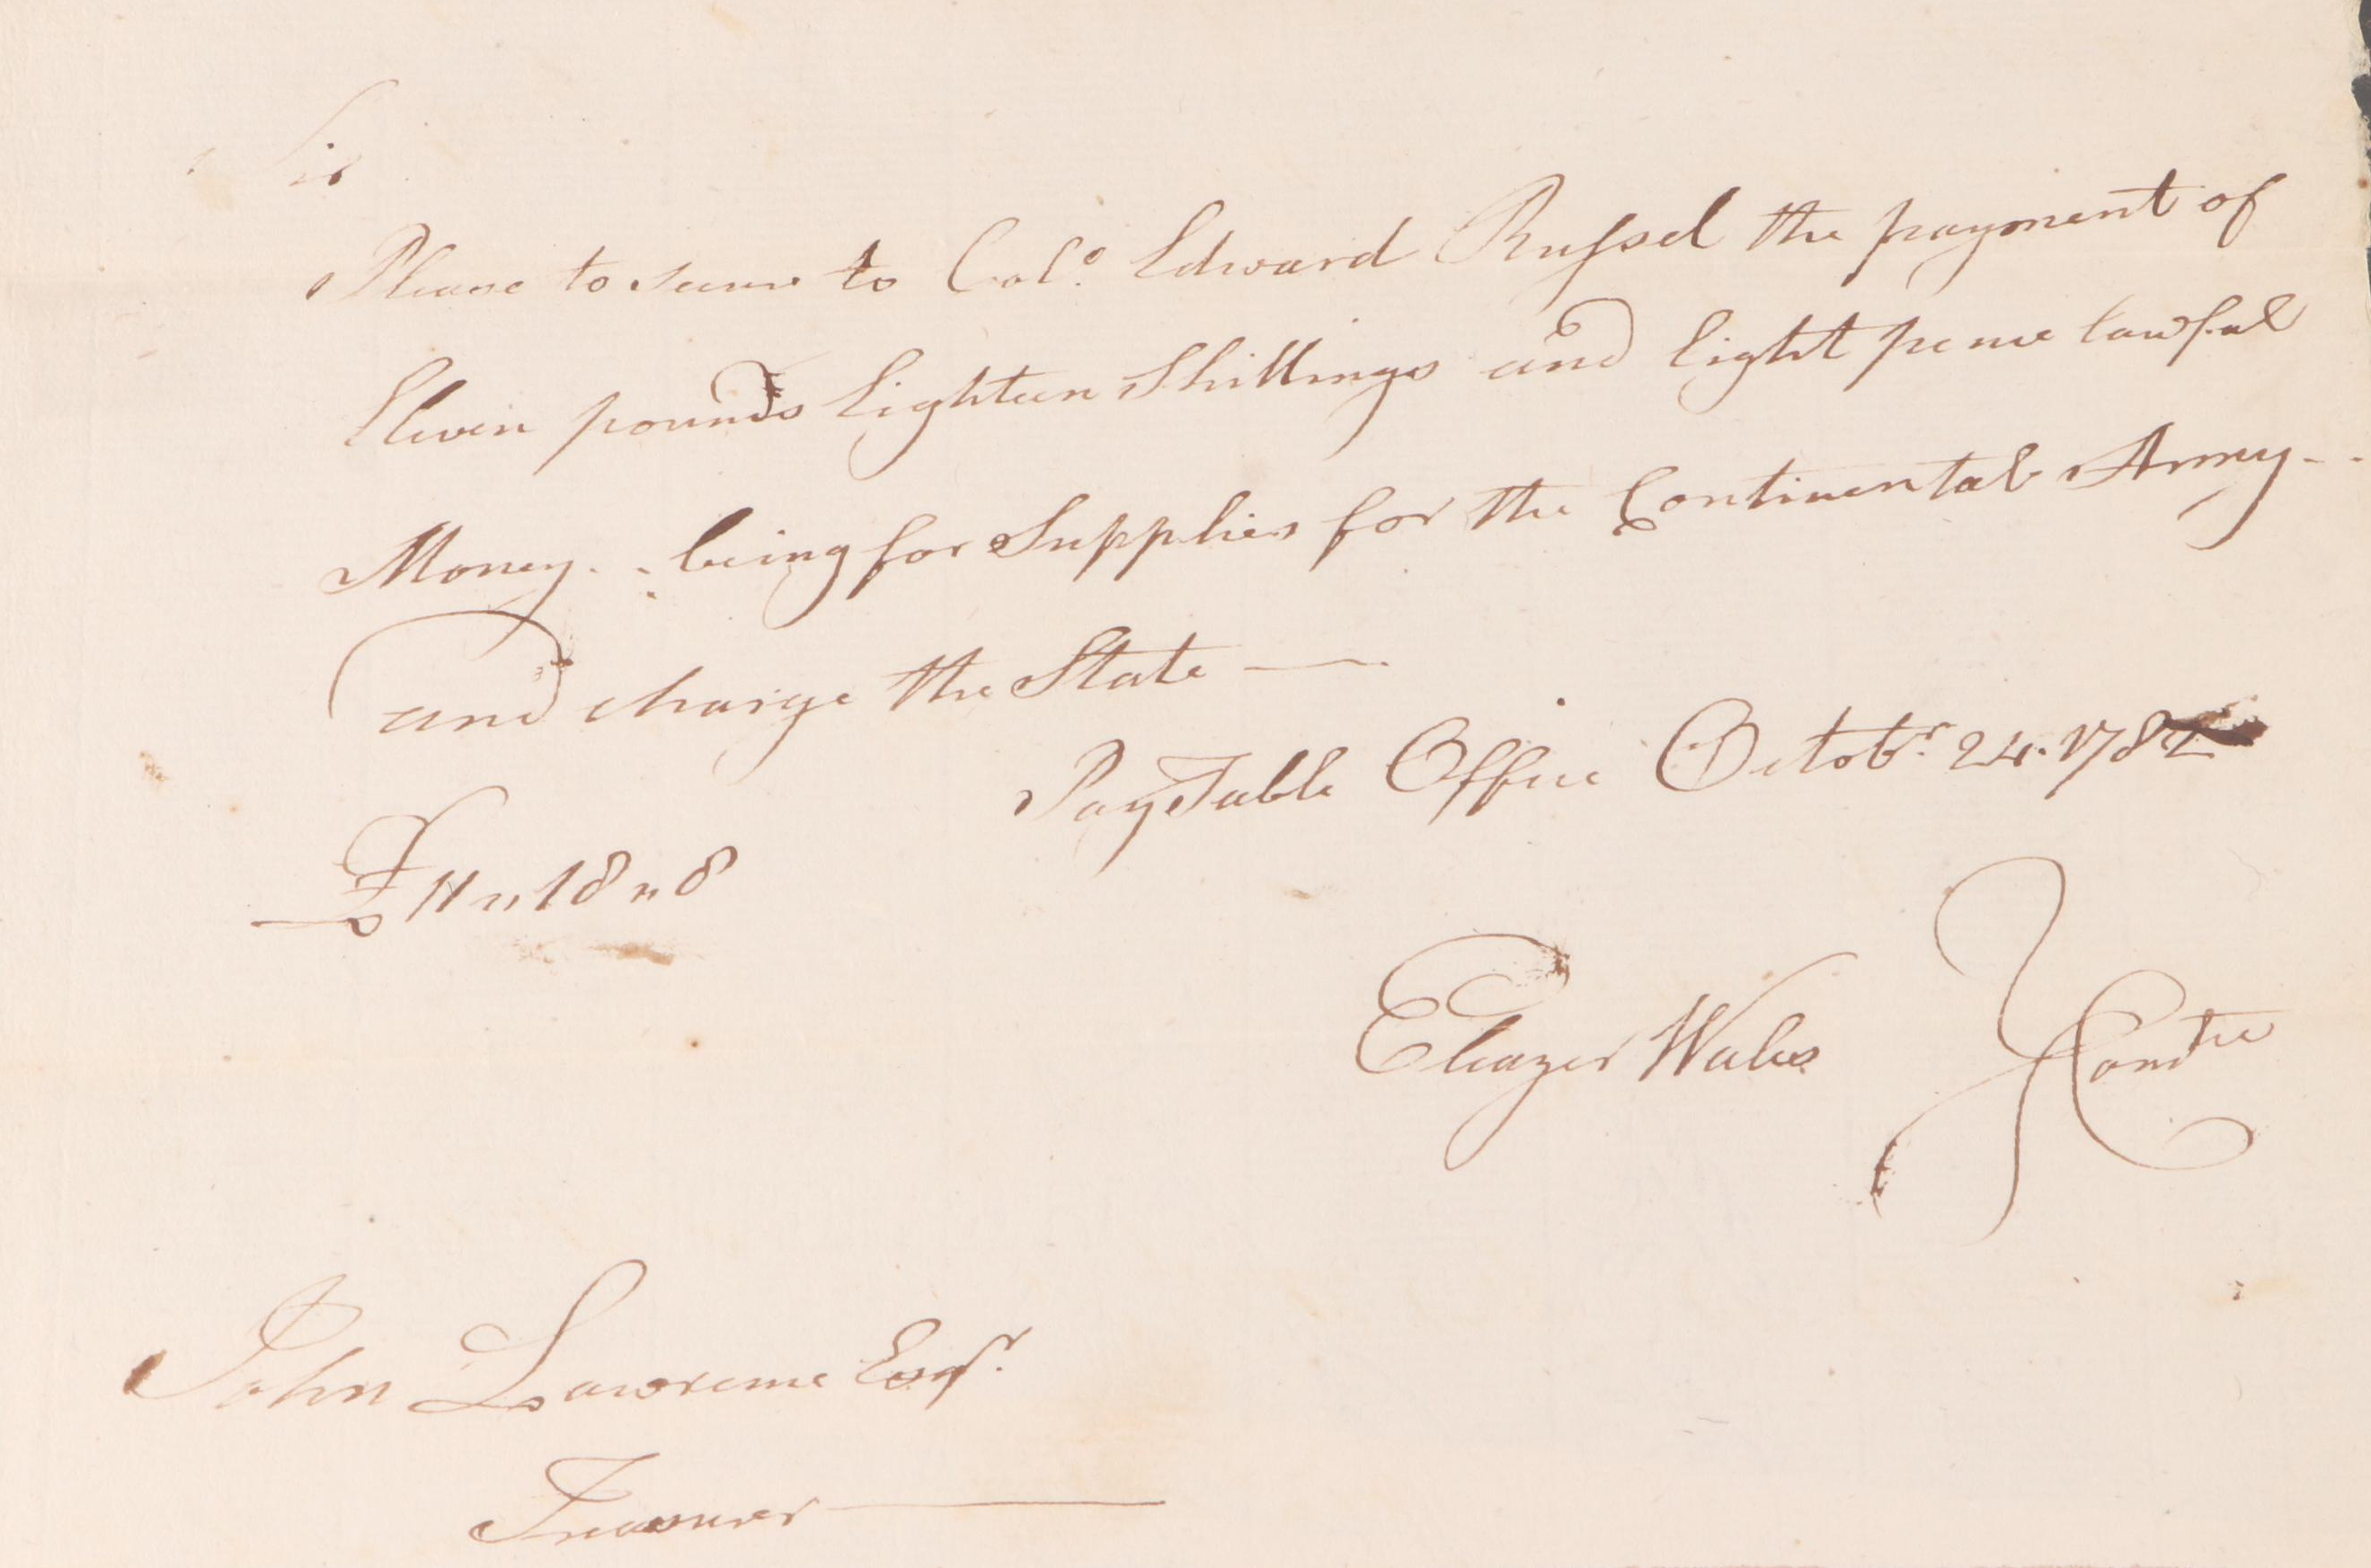 Sir
Please to secure to Colº. Edward Russel the payment of
Eleven pounds Eighteen Shillings and Eight pence lawful
Money - - being for Supplies for the Continental Army - -
and charge the State —
Pay Table Office Octobr. 24. 1782
£11 " 18 " 8
Eleazer Wales } Comtee
John Lawrence Esqr.
Treasurer —